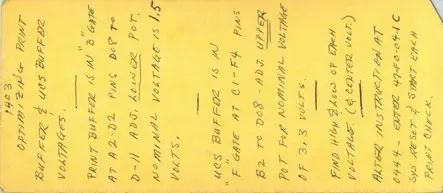 1403
OPTIMIZING PRINT
BUFFER & UCS BUFFER
VOLTAGES.
PRINT BUFFER IS IN "B" GATE
AT A2-D2 PINS D08 TO
D-11 ADJ. LOWER POT.
NOMINAL VOLTAGE IS 1.5
VOLTS.
UCS BUFFER IS IN
"F GATE AT C1-F4 PINS
B2 TO D08 - ADJ. UPPER
POT FOR NOMINAL VOLTAGE
OF 3.3 VOLTS.
FIND HIGH & LOW OF EACH
VOLTAGE (& CENTER VOLT.)
AFTER INSTRUCTION AT
0444 - ENTER 49-F0-04-1C
SYS RESET & START EACH
PRINT CHECK.